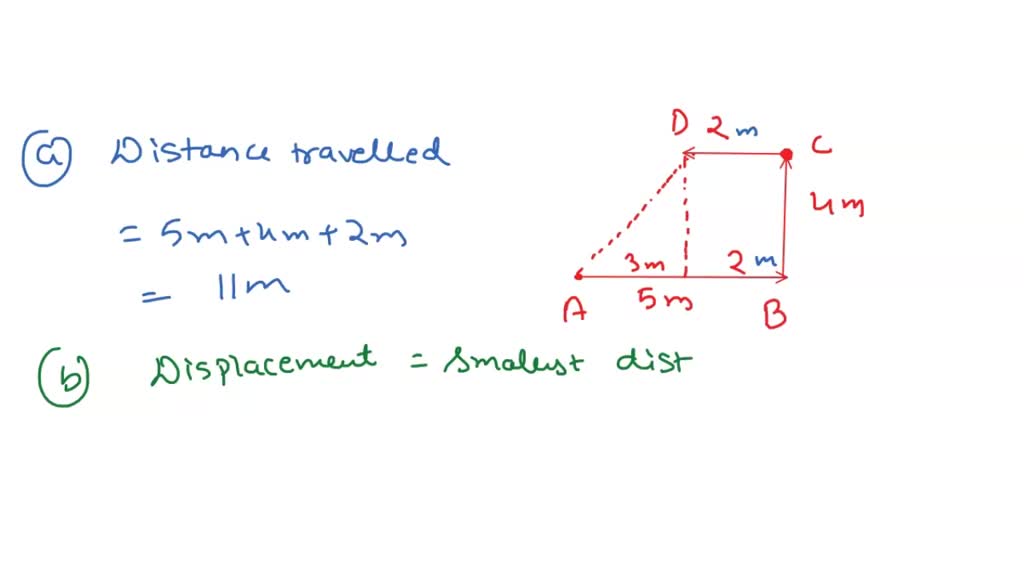 (a) Distance travelled
= 5m+4m+2m
= 11m
(b) Displacement = smallest dist
D 2m C
4m
3m 2m
A 5m B